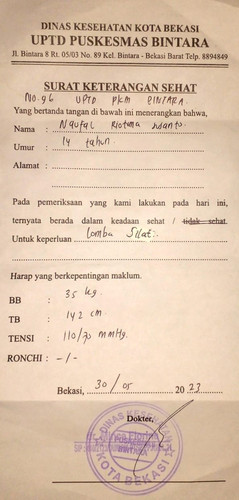 DINAS KESEHATAN KOTA BEKASI
UPTD PUSKESMAS BINTARA
Jl. Bintara 8 Rt. 05/03 No. 89 Kel. Bintara - Bekasi Barat Telp. 8894849
SURAT KETERANGAN SEHAT
No. 96 UPTD PKM BINTARA
Yang bertanda tangan di bawah ini menerangkan bahwa,
Nama : Naufal
Umur : 14 tahun
Alamat :
Pada pemeriksaan yang kami lakukan pada hari ini,
ternyata berada dalam keadaan sehat / tidak sehat.
Untuk keperluan : Lomba Silat
Harap yang berkepentingan maklum.
BB : 35 kg
TB : 142 cm
TENSI : 110/70 mmHg.
RONCHI : -/-
Bekasi, 30 / 05 20 23
Dokter,
DINAS KESEHATAN
KOTA BEKASI